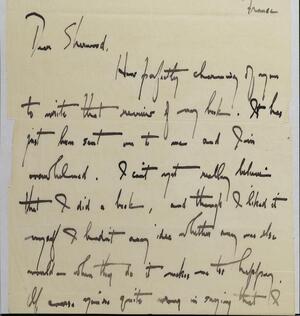 France
Dear Sherwood,
How perfectly charming of you
to write that review of my book. It has
just been sent on to me and I'm
overwhelmed. I can't yet really believe
that I did a book, and though I liked it
myself I hadn't any idea whether any one else
would — when they do it makes me too happy.
Of course you're quite wrong in saying that I